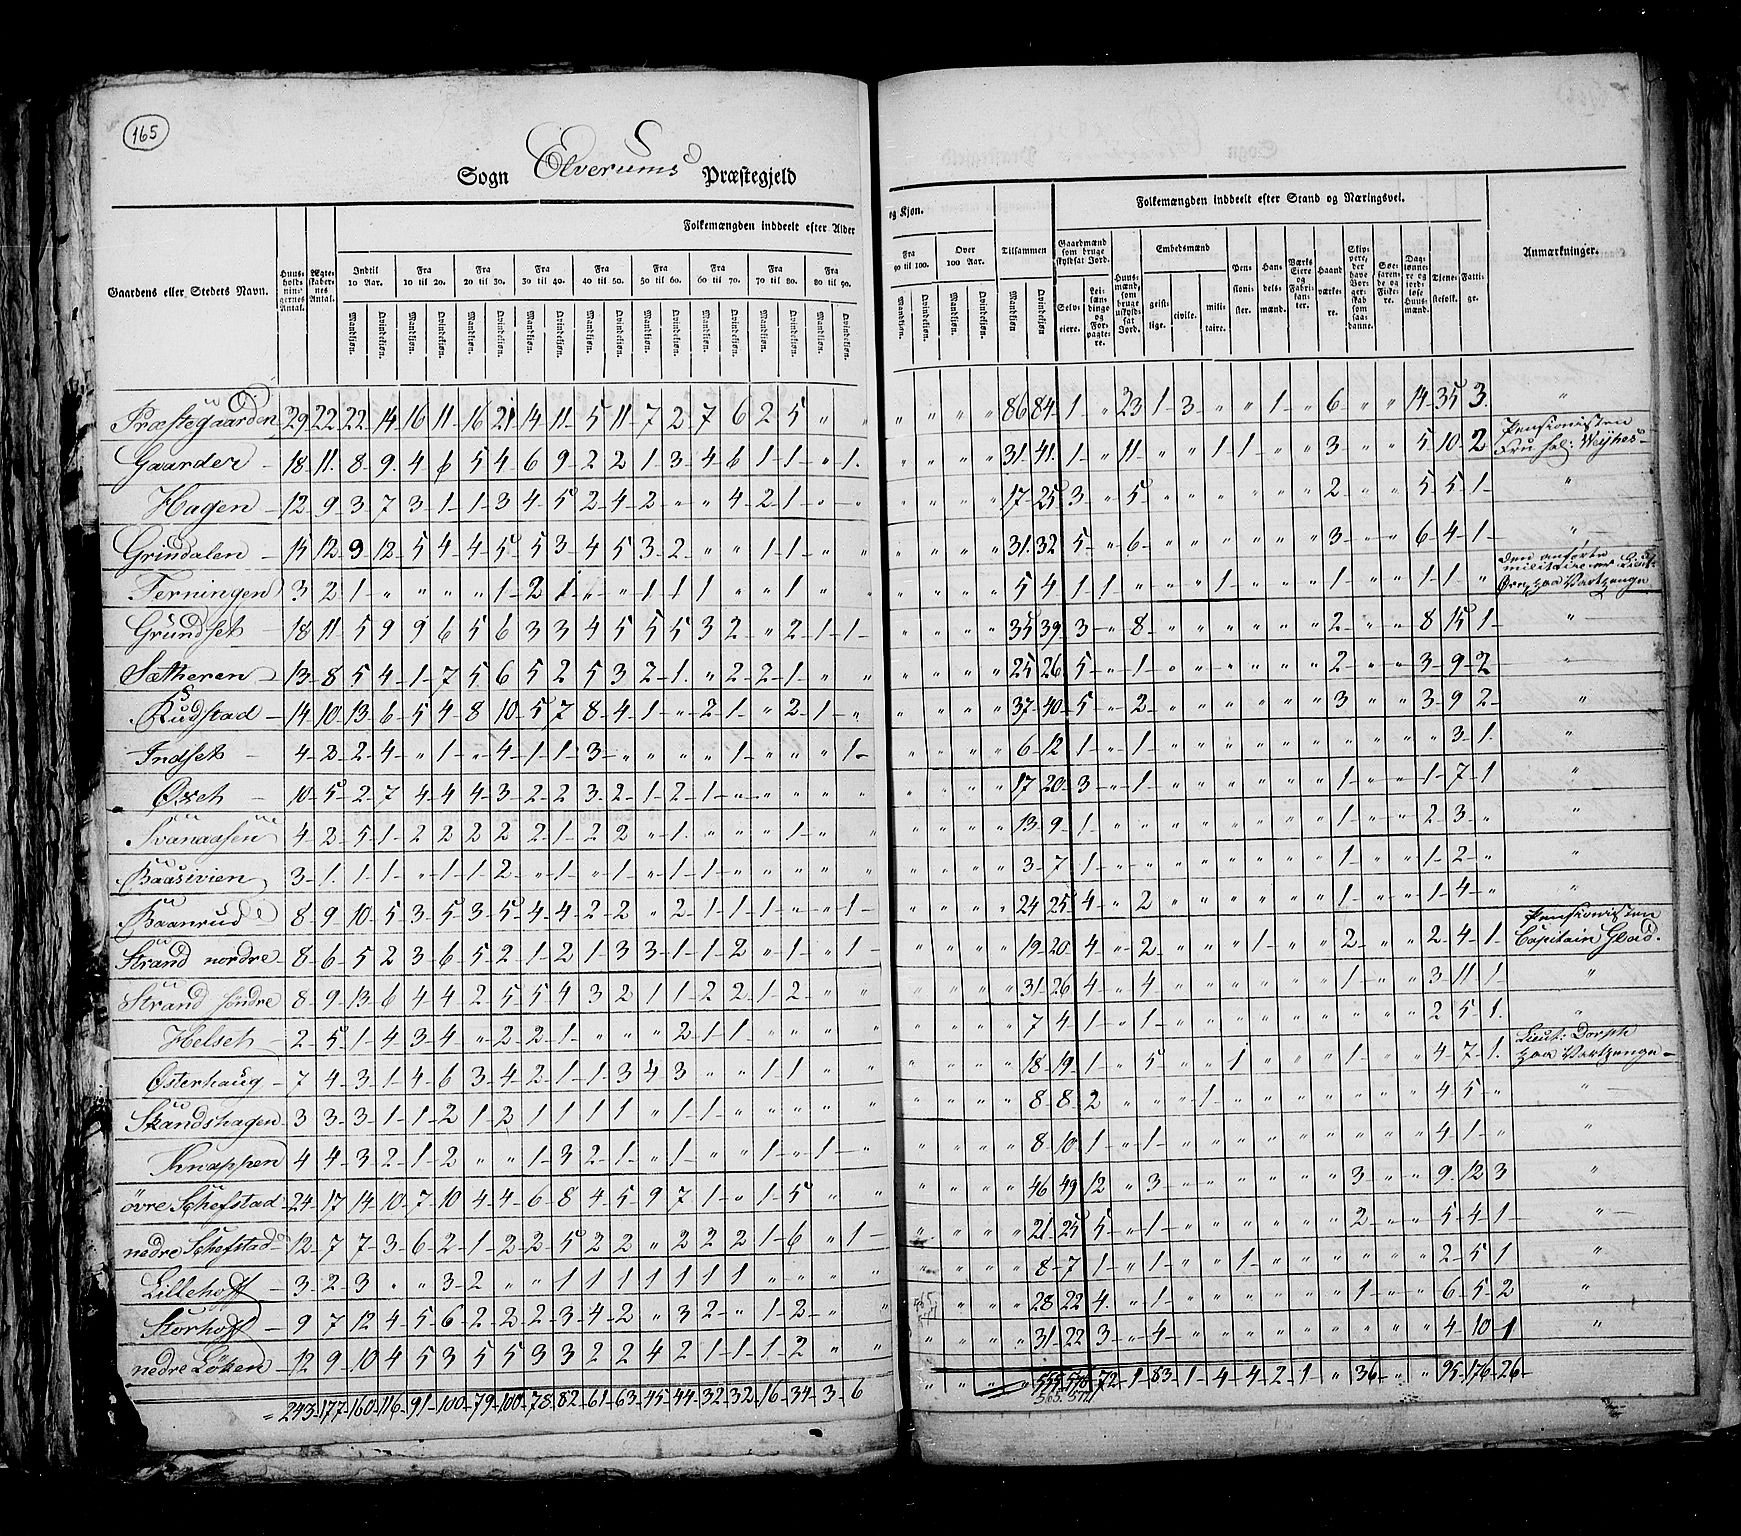 165
Sogn Elverums Præstegjeld
Folkemængden inddeelt efter Alder
og Kjøn.
Folkemængden inddeelt efter Stand og Næringsvei.
Gaardens eller Stedets Navn.
Huusholdningernes Antal.
Ægteskabernes Antal.
Indtil 10 Aar.
Fra 10 til 20.
Fra 20 til 30.
Fra 30 til 40.
Fra 40 til 50.
Fra 50 til 60.
Fra 60 til 70.
Fra 70 til 80.
Fra 80 til 90.
Fra 90 til 100.
Over 100 Aar.
Tilsammen
Mandkjøn. Qvindekjøn.
Gaardmænd som bruge skyldsat Jord.
Selveiere.
Leilændinge og Forpagtere.
Huusmænd, som bruge uskyldsat Jord.
Embedsmænd
geistlige.
civile.
militaire.
Pensionister.
Handelsmænd.
Værks Eiere og Fabrikanter.
Haandværkere.
Skippere, der have Borgerskab som saadanne.
Søefarende og Fiskere.
Daglønnere og jordløse Huusmænd.
Tjenestefolk.
Fattige.
Anmærkninger.
Præstegaarden 29 22 22 14 16 11 16 21 14 11 5 11 7 2 7 6 2 5 " " " " " " 86 84 1 " 23 1 3 " " 1 " 6 " " 14 35 3 "
Pensionisten
Gaarder 18 11 8 9 4 6 5 4 6 9 2 2 1 3 4 6 1 1 " 1 " " " " 31 41 1 " 11 " " 1 1 " " 3 " " 5 10 2 Fru sal: Weyhes
Hagen 12 9 3 7 3 1 1 3 4 5 2 4 2 " " 4 2 1 " " " " " " 17 25 3 " 5 " " " " " " 2 " " 5 5 1 "
Grindalen 15 12 9 12 5 4 4 5 5 3 4 5 3 2 " " 1 1 " " " " " " 31 32 5 " 6 " " " " " " 3 " " 6 4 1 "
Den anførte
militaire er Lieut:
Terningen 3 2 1 " " " " 1 2 1 " " 1 1 1 " " 1 " " " " " " 5 4 1 1 " " " 1 " " " 1 " " 1 1 " paa Vartpenge
Grundset 18 11 5 9 9 6 5 6 3 3 4 5 5 5 3 2 " 2 1 1 " " " " 35 39 3 " 8 " " " " " " 2 " " 8 15 1 "
Sætheren 13 8 5 4 1 7 5 6 5 2 5 3 2 1 " 2 2 1 " " " " " " 25 26 5 " 1 " " " " " " 2 " " 3 9 2 "
Rudstad 14 10 13 6 5 4 8 10 5 7 8 4 1 " 2 1 " 2 1 " " " " " 37 40 5 " 2 " " " " " " 3 " " 3 9 2 "
Indset 4 2 2 4 " 1 " 4 1 1 3 " " " " 1 " " " 1 " " " " 6 12 1 " 1 " " " " " " " " " " 3 1 "
Øxet 10 5 2 7 4 4 4 3 2 2 3 2 1 2 1 " " " " " " " " " 17 20 3 " 1 " " " " " " 1 " " 1 7 1 "
Svanaasen 4 2 5 1 2 2 2 2 2 1 2 2 " 1 " " " 1 " " " " " " 13 9 1 " " " " " " " " 1 " " 2 3 " "
Baasivien 3 1 1 1 " 1 1 2 " 1 " 1 " 1 1 " " 1 " " " " " " 3 7 1 " " " " " " " " 1 " " 1 2 " "
Baanrud 8 9 10 5 3 5 3 5 4 4 2 2 " 2 1 1 1 " " 1 " " " " 24 25 4 " 2 " " " " " " 1 " " 1 4 " "
Pensionisten
Strand nordre 8 6 5 2 3 6 5 2 1 2 1 3 3 1 1 2 " 1 " 1 " " " " 19 20 4 " 2 " " " 1 " " 2 " " 2 4 1 Capitain Glad.
Strand søndre 8 9 13 6 4 4 2 5 5 4 3 2 1 1 2 2 1 2 " " " " " " 31 26 4 " 4 " " " " " " 1 " " 3 11 1 "
Helset 2 5 1 4 3 4 " 2 2 1 " " " 2 1 1 " " " " " " " " 7 4 1 " 1 " " " " " " " " " 2 5 1 "
Lieut: Dorph
Østerhaug 7 4 3 1 4 6 3 4 2 1 1 3 4 3 " " 1 1 " " " " " " 18 19 1 " 5 " " 1 " " " 1 " " 4 7 1 paa Vartpenge
Skandshagen 3 3 3 1 1 2 1 2 1 1 1 1 " 1 1 " " " " " " " " " 8 8 2 " " " 1 " " " " " " " 4 5 " "
Knappen 4 4 3 2 1 2 " " 1 3 2 1 " 1 " " 1 " 1 " " " " " 8 10 1 " 1 " " " " " " " " " 4 1 " "
övre Schefstad 24 17 14 10 7 10 4 4 6 8 4 5 9 7 1 " 1 5 " " " " " " 46 49 12 " 3 " " " " " " 3 " " 9 12 3 "
nedre Schefstad 12 7 7 3 6 2 1 2 2 5 2 2 " 2 2 2 1 6 " 1 " " " " 21 25 5 " 1 " " " " " " 2 " " 5 4 1 "
Lillehoff 3 2 3 " " 3 2 " " 1 1 1 1 1 1 1 " " " " " " " " 8 7 1 " " " " 1 " " " " " " 2 5 1 "
Storhoff 9 7 12 4 5 6 2 2 2 3 4 2 " 3 2 " 1 2 " " " " " 28 22 4 " 1 " " " " " " 1 " " 6 5 2 "
nedre Löken 12 9 10 4 5 3 5 5 3 3 2 2 4 2 1 1 1 2 " " " " " " 31 22 3 " 4 " " " " " " " " " 4 10 1 "
243 177 160 116 91 100 79 100 78 82 61 63 45 44 32 32 16 34 3 6 " " " " 72 1 83 1 4 4 2 1 " 36 " " 95 176 26
565 571